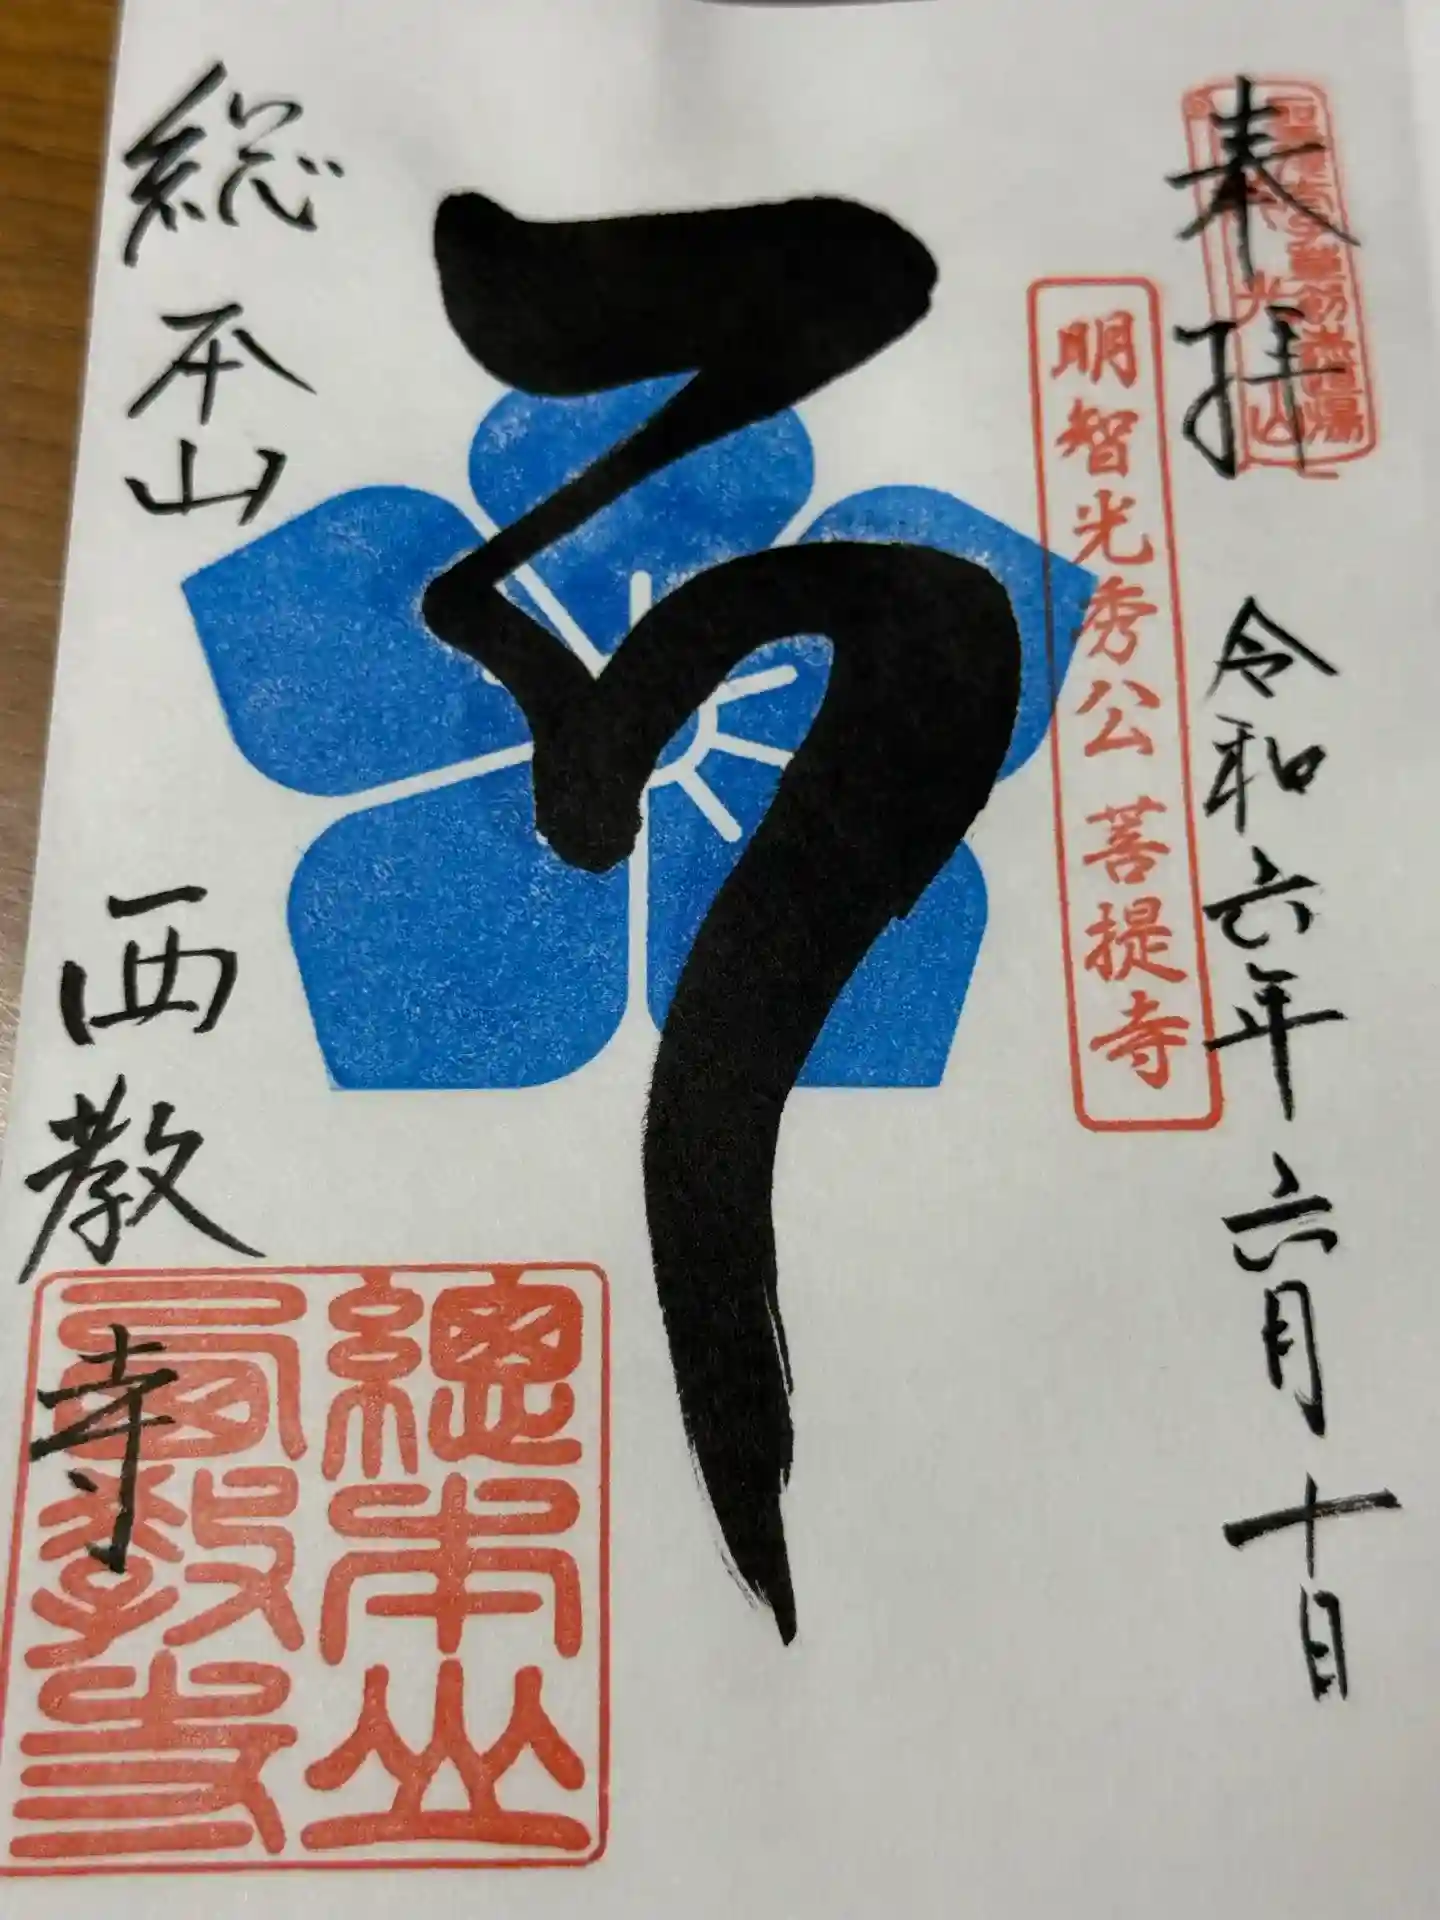 奉拝 令和六年六月十日
明智光秀公 菩提寺
総本山 西教寺
總本山
西教寺